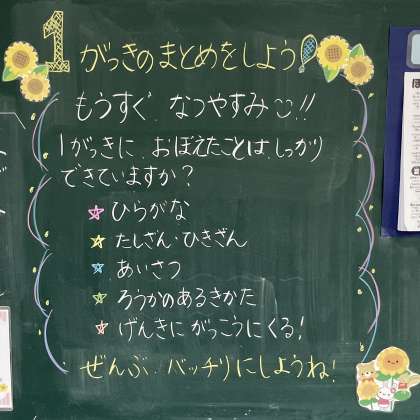 1がっきのまとめをしよう!
もうすぐ、なつやすみ!!
1がっきに、おぼえたことは、しっかり
できていますか?
☆ひらがな
☆たしざん・ひきざん
☆あいさつ
☆ろうかのあるきかた
☆げんきにがっこうにくる!
ぜんぶ、バッチリにしようね!